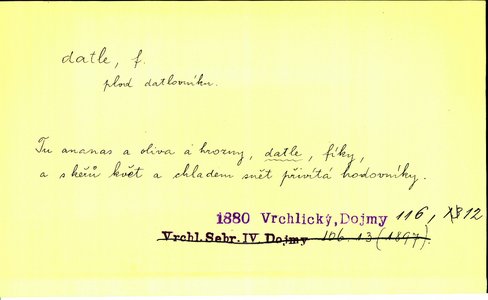 datle, f.
plod datlovníku.
Tu ananas a oliva a hrozny, datle, fíky,
a keřů květ a chladem snět přivítá hodovníky.
1880 Vrchlický, Dojmy 116, 12
Vrchl. Sebr. IV. Dojmy 106. 13 (1897).